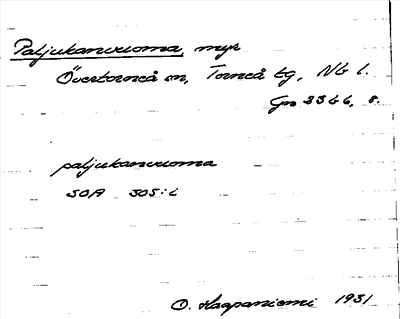 Paljukanvuoma, myr
Övertorneå sn, Torneå tg, Nb l.
Gn 3366, 8.
paljukanvuoma
SOA 305:i
O. Haapaniemi 1931